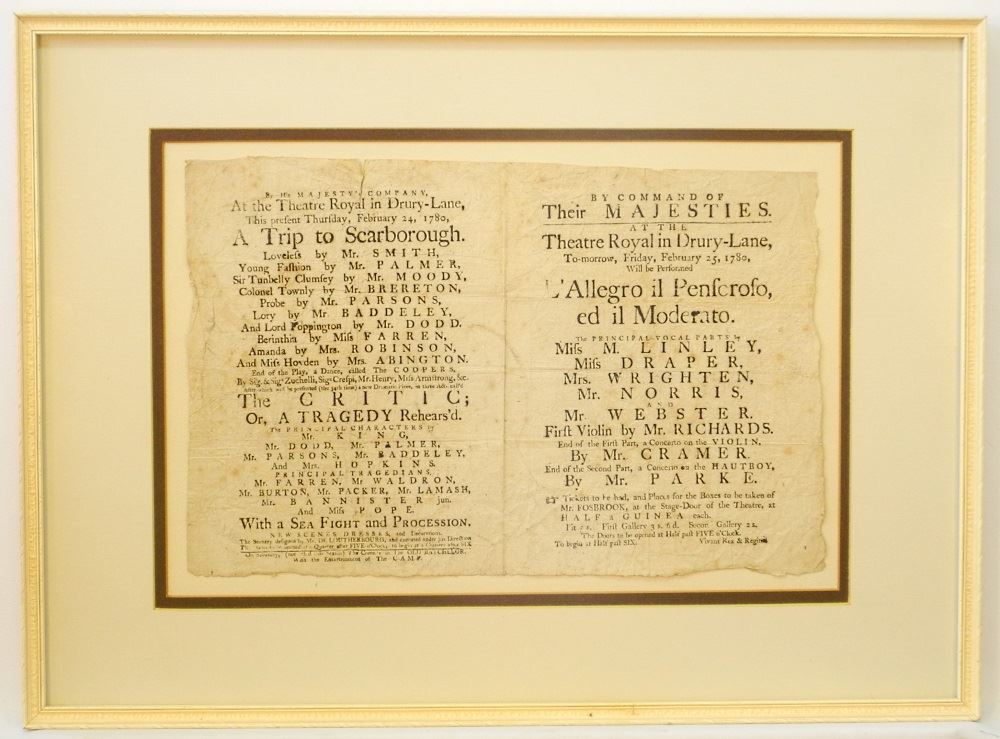 By His MAJESTY's COMPANY,
At the Theatre Royal in Drury-Lane,
This present Thursday, February 24, 1780,
A Trip to Scarborough.
Loveless by Mr. SMITH,
Young Fashion by Mr. PALMER,
Sir Tunbelly Clumsey by Mr. MOODY,
Colonel Townly by Mr. BRERETON,
Probe by Mr. PARSONS,
Lory by Mr. BADDELEY,
And Lord Foppington by Mr. DODD.
Berinthia by Miſs FARREN,
Amanda by Mrs. ROBINSON,
And Miſs Hoyden by Mrs. ABINGTON.
End of the Play, a Dance, called The COOPERS,
By Sig. & Sigª Zuchelli, Sigª Crespi, Mr. Henry, Miſs Armstrong, &c.
After which will be performed (the 34th time) a new Dramatic Piece, in three Acts, call'd
The CRITIC;
Or, A TRAGEDY Rehears'd.
The PRINCIPAL CHARACTERS by
Mr. KING,
Mr. DODD, Mr. PALMER,
Mr. PARSONS, Mr. BADDELEY,
And Mrs. HOPKINS.
PRINCIPAL TRAGEDIANS,
Mr. FARREN, Mr WALDRON,
Mr. BURTON, Mr. PACKER, Mr. LAMASH,
Mr. BANNISTER jun.
And Miſs POPE.
With a SEA FIGHT and PROCESSION.
NEW SCENES DRESSES, and Decorations.
The Scenery designed by Mr. DE LOUTHERBOURG, and executed under his Direction
The Doors to be opened at a Quarter after FIVE o'Clock, to begin at a Quarter after SIX
On Saturday, The Comedy of The OLD BATCHELOR.
With the Entertainment of The CAMP.
BY COMMAND OF
Their MAJESTIES.
AT THE
Theatre Royal in Drury-Lane,
To-morrow, Friday, February 25, 1780,
Will be Performed
L'Allegro il Penſeroſo,
ed il Moderato.
The PRINCIPAL VOCAL PARTS by
Miſs M. LINLEY,
Miſs DRAPER,
Mrs. WRIGHTEN,
Mr. NORRIS,
AND
Mr. WEBSTER.
Firſt Violin by Mr. RICHARDS.
End of the Firſt Part, a Concerto on the VIOLIN,
By Mr. CRAMER.
End of the Second Part, a Concerto on the HAUTBOY,
By Mr. PARKE.
☞ Tickets to be had, and Places for the Boxes to be taken of
Mr. FOSBROOK, at the Stage-Door of the Theatre, at
HALF a GUINEA each.
Pit 5s. Firſt Gallery 3s. 6d. Second Gallery 2s.
The Doors to be opened at Half paſt FIVE o'Clock.
To begin at Half paſt SIX. Vivant Rex & Regina